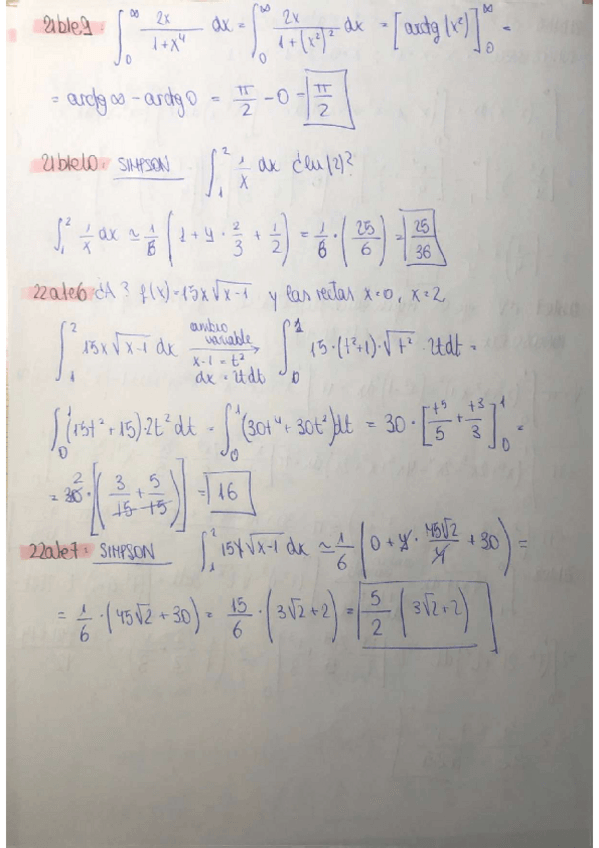 21ble9: ∫₀^∞ 2x/(1+x⁴) dx = ∫₀^∞ 2x/(1+(x²)²) dx = [arctg(x²)]₀^∞ =
= arctg ∞ - arctg 0 = π/2 - 0 = π/2
21ble10: SIMPSON ∫₁² 1/x dx ¿ln(2)?
∫₁² 1/x dx ≃ 1/6 (1 + 4 · 2/3 + 1/2) = 1/6 · (25/6) = 25/36
22ale6 ¿A? f(x)=15x√(x-1) y las rectas x=0, x=2
∫₁² 15x√(x-1) dx cambio variable x-1=t² dx=2tdt → ∫₀¹ 15·(t²+1)·√t² · 2tdt =
∫₀¹ (15t²+15)·2t² dt = ∫₀¹ (30t⁴+30t²)dt = 30 · [t⁵/5 + t³/3]₀¹ =
= 30 2 · [(3/15 + 5/15)] = 16
22ale7: SIMPSON ∫₁² 15x√(x-1) dx ≃ 1/6 (0 + 4 · 45√2/4 + 30) =
= 1/6 · (45√2 + 30) = 15/6 · (3√2+2) = 5/2 (3√2+2)